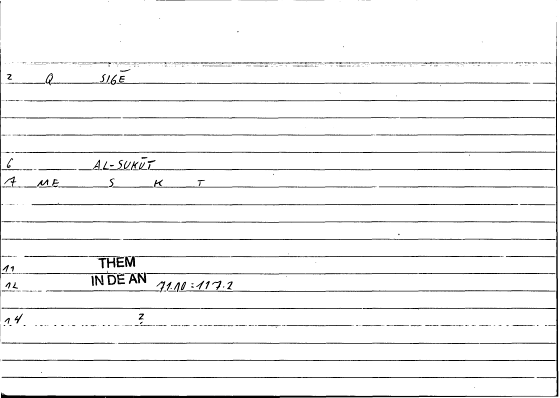 2 Q SIGĒ
6 AL-SUKŪT
7 ME S K T
11 THEM
IN DE AN
12 71.10:117.2
14 2